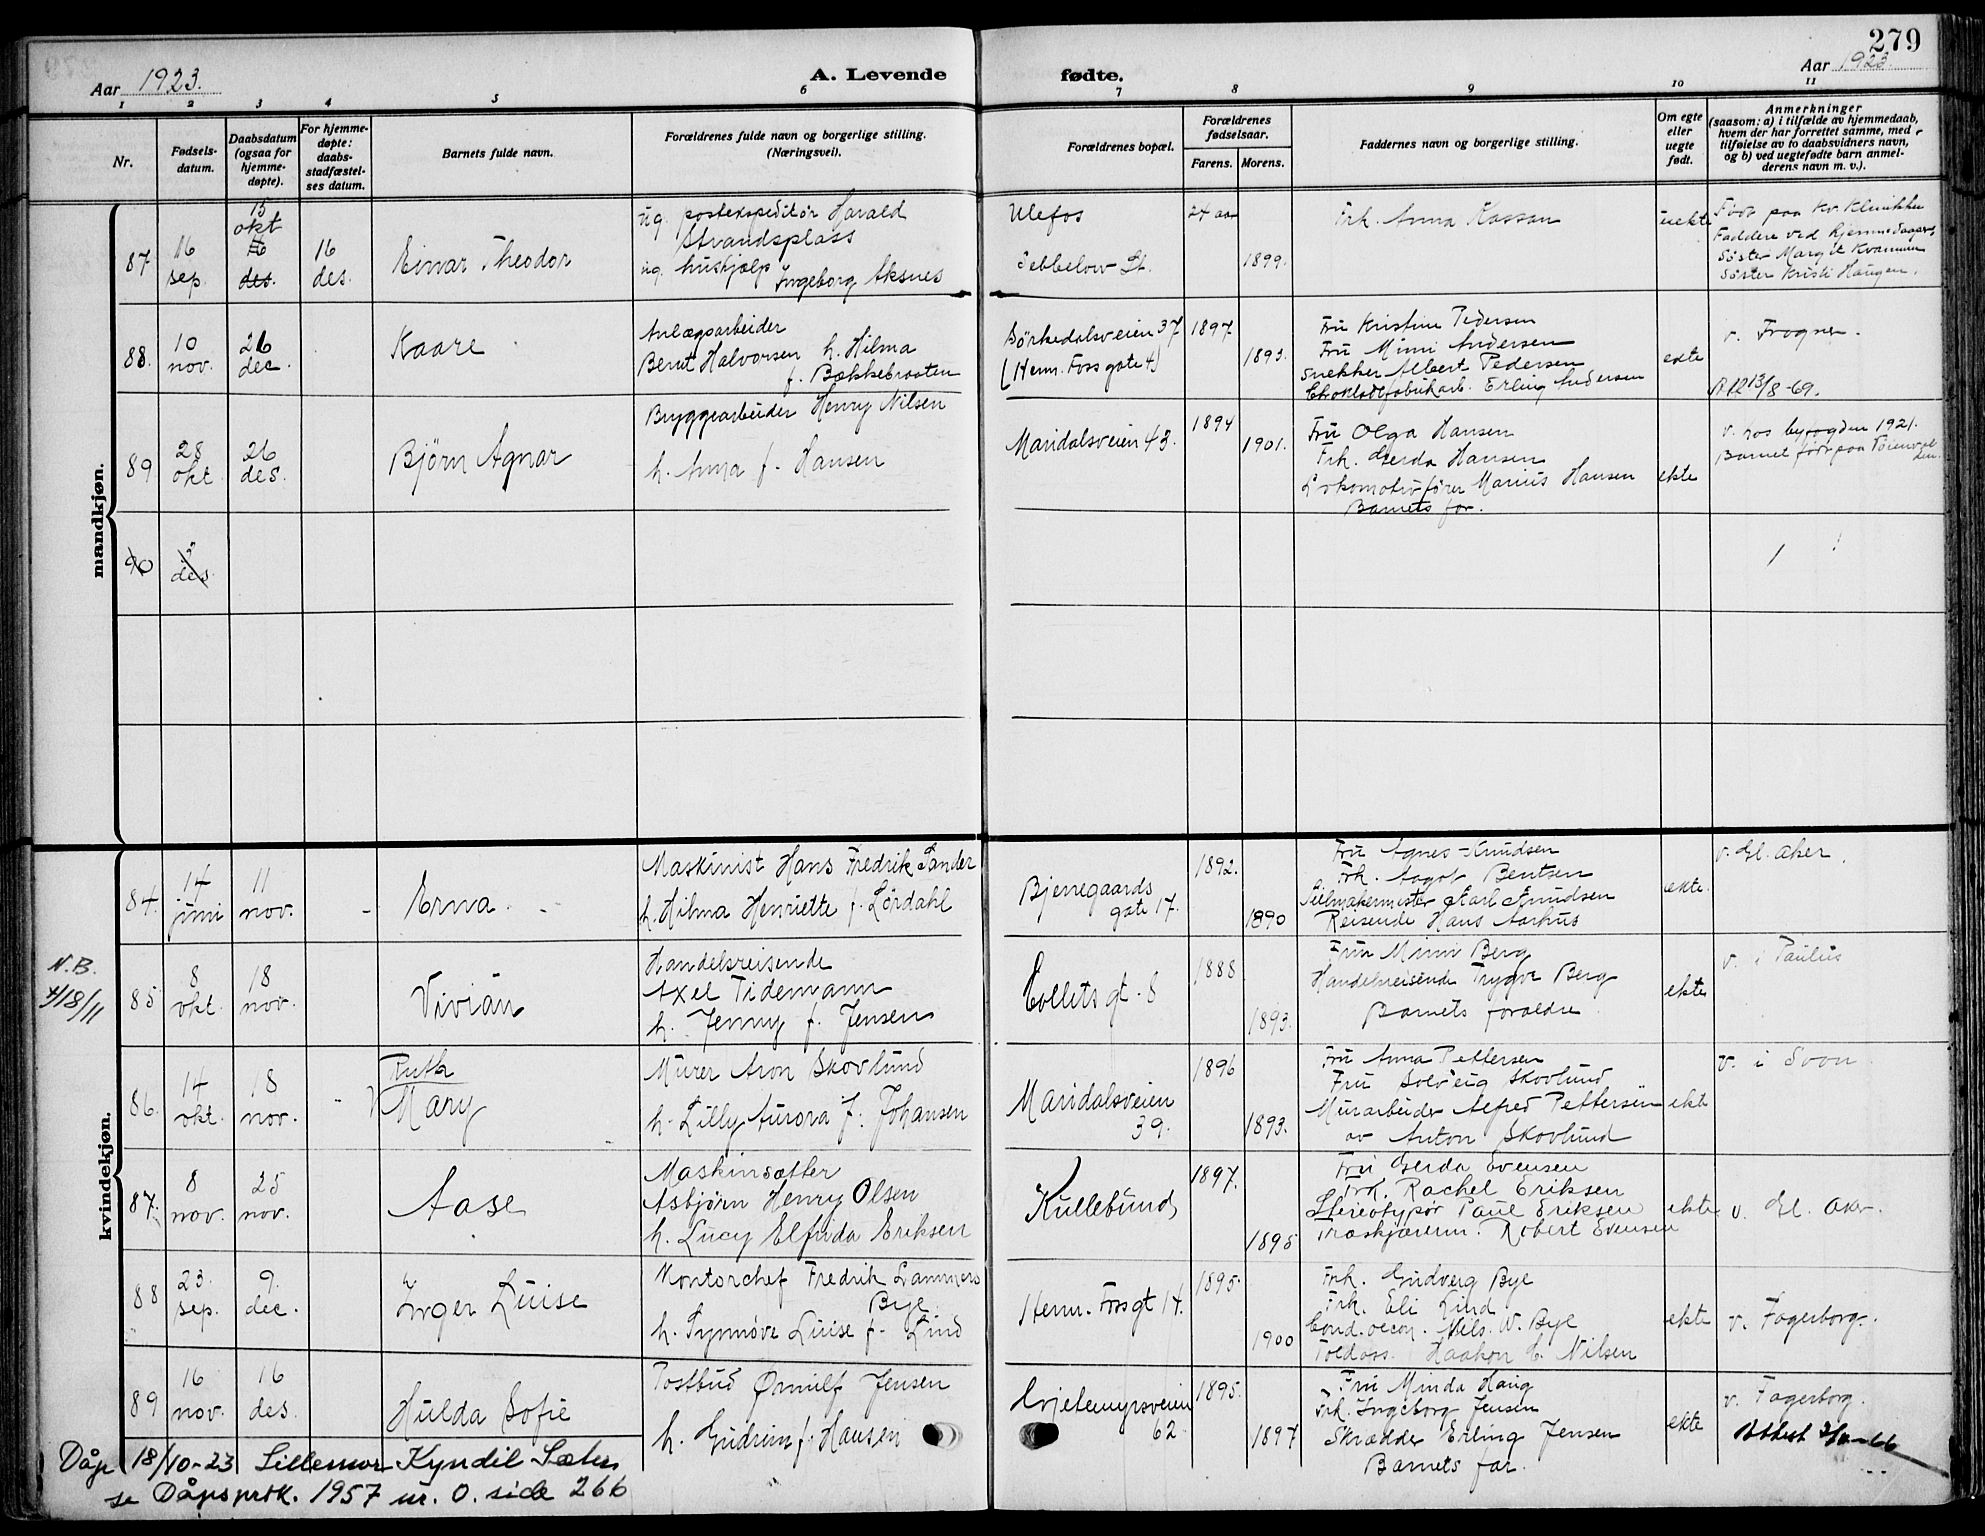 279
Aar 1923.
A. Levende
fødte.
Aar 1923.
1 2 3 4 5 6 7 8 9 10 11
Nr.
Fødsels-
datum.
Daabsdatum
(ogsaa for
hjemme-
døpte).
For hjemme-
døpte:
daabs-
stadfæstel-
ses datum.
Barnets fulde navn.
Forældrenes fulde navn og borgerlige stilling.
(Næringsvei).
Forældrenes bopæl.
Forældrenes
fødselsaar.
Farens. Morens.
Faddernes navn og borgerlige stilling.
Om egte
eller
uegte
født.
Anmerkninger
(saasom: a) i tilfælde av hjemmedaab,
hvem der har forrettet samme, med
tilføielse av to daabsvidners navn,
og b) ved uegtefødte barn anmel-
derens navn m. v.).
mandkjøn.
87
16
sep.
15
okt
16
des.
16
des.
Einar Theodor
ug. postekspeditør Harald
Strandsplass
ug. hushjælp Ingeborg Aksnes
Ulefos
St.
24 aar
1899.
Frk. Anna
uekte
Født paa Kv. Klinikken
Faddere ved hjemmedaapen
Søster Margit Kvammen
Søster Kristi Haugen.
88.
10
nov.
26
dec.
Kaare
Anlægsarbeider
Bernt Halvorsen h. Hilma
f. Bækkebraaten
Sørkedalsveien 37
(Herm. Foss gate 4)
1897.
1893.
Fru Kristine Pedersen
Fru Mimi Andersen
Snekker Albert Pedersen
Chokladefabrikarb. Erling Andersen
ekte
v. Frogner.
13/8-69.
89
28
okt.
26
des.
Bjørn Agnar
Bryggearbeider Henry Nilsen
h. Anna f. Hansen
Maridalsveien 43.
1894
1901.
Fru Olga Hansen
Frk. Gerda Hansen
Lokomotivfører Marius Hansen
Barnets far.
ekte
v. hos byfogden 1921.
Barnet født paa
90
des
kvindekjøn.
84.
14
juni
11
nov.
Erna
Maskinist Hans Fredrik Sander
h. Hilma Henriette f. Lørdahl
Bjerregaards
gate 17.
1892.
1890
Fru Agnes Knudsen
Frk. Aagot Bentsen
Seilmakermester Karl Knudsen
Reisende Hans Aarhus
ekte.
v. Gl. Aker.
N.B.
18/11
85
8
okt.
18
nov.
Vivian
Handelsreisende
Axel Tidemann
h. Jenny f. Jensen
Collets gt. 8
1888
1893.
Fru Mimi Berg
Handelsreisende Trygve Berg
Barnets forældre
ekte
v. i Paulus
86.
14
okt.
18
nov.
Ruth
Mary
Murer Aron Skovlund
h. Lilly Aurora f. Johansen
Maridalsveien
39.
1896
1893.
Fru Anna Pettersen
Fru Solveig Skovlund
Murarbeider Alfred Pettersen
av Anton Skovlund
ekte
v. i Svon
87.
8
nov.
25
nov.
Aase
Maskinsætter
Asbjørn Henry Olsen
h. Lucy Elfrida Eriksen
Kullebund
1897.
1895
Fru Gerda Evensen
Frk. Rachel Eriksen
Stereotypør Paul Eriksen
Træskjærerm. Robert Evensen
ekte
v. Gl. Aker.
88
23.
sep.
9.
dec.
Inger Luise
Montørchef Fredrik Lammers
Bye
h. Synnøve Luise f. Lind
Herm. Foss gt 14.
1895.
1900
Frk. Gudveig Bye
Frk. Eli Lind
Cand. oecon. Nils W. Bye
Toldass. Haakon C. Nilsen
ekte
v. Fagerborg.
89
16
nov.
16
des.
Hulda Sofie
Postbud Ørnulf Jensen
h. Gudrun f. Hansen
Geitemyrsveien
62.
1895.
1897
Fru Minda Haug
Frk. Ingeborg Jensen
Skrædder Erling Jensen
Barnets far.
ekte
v. Fagerborg.
Attest
Dåp 18/10-23 Lillemor Kyndil Sæter
se Dåpsprot. 1957 nr. 0. side 266